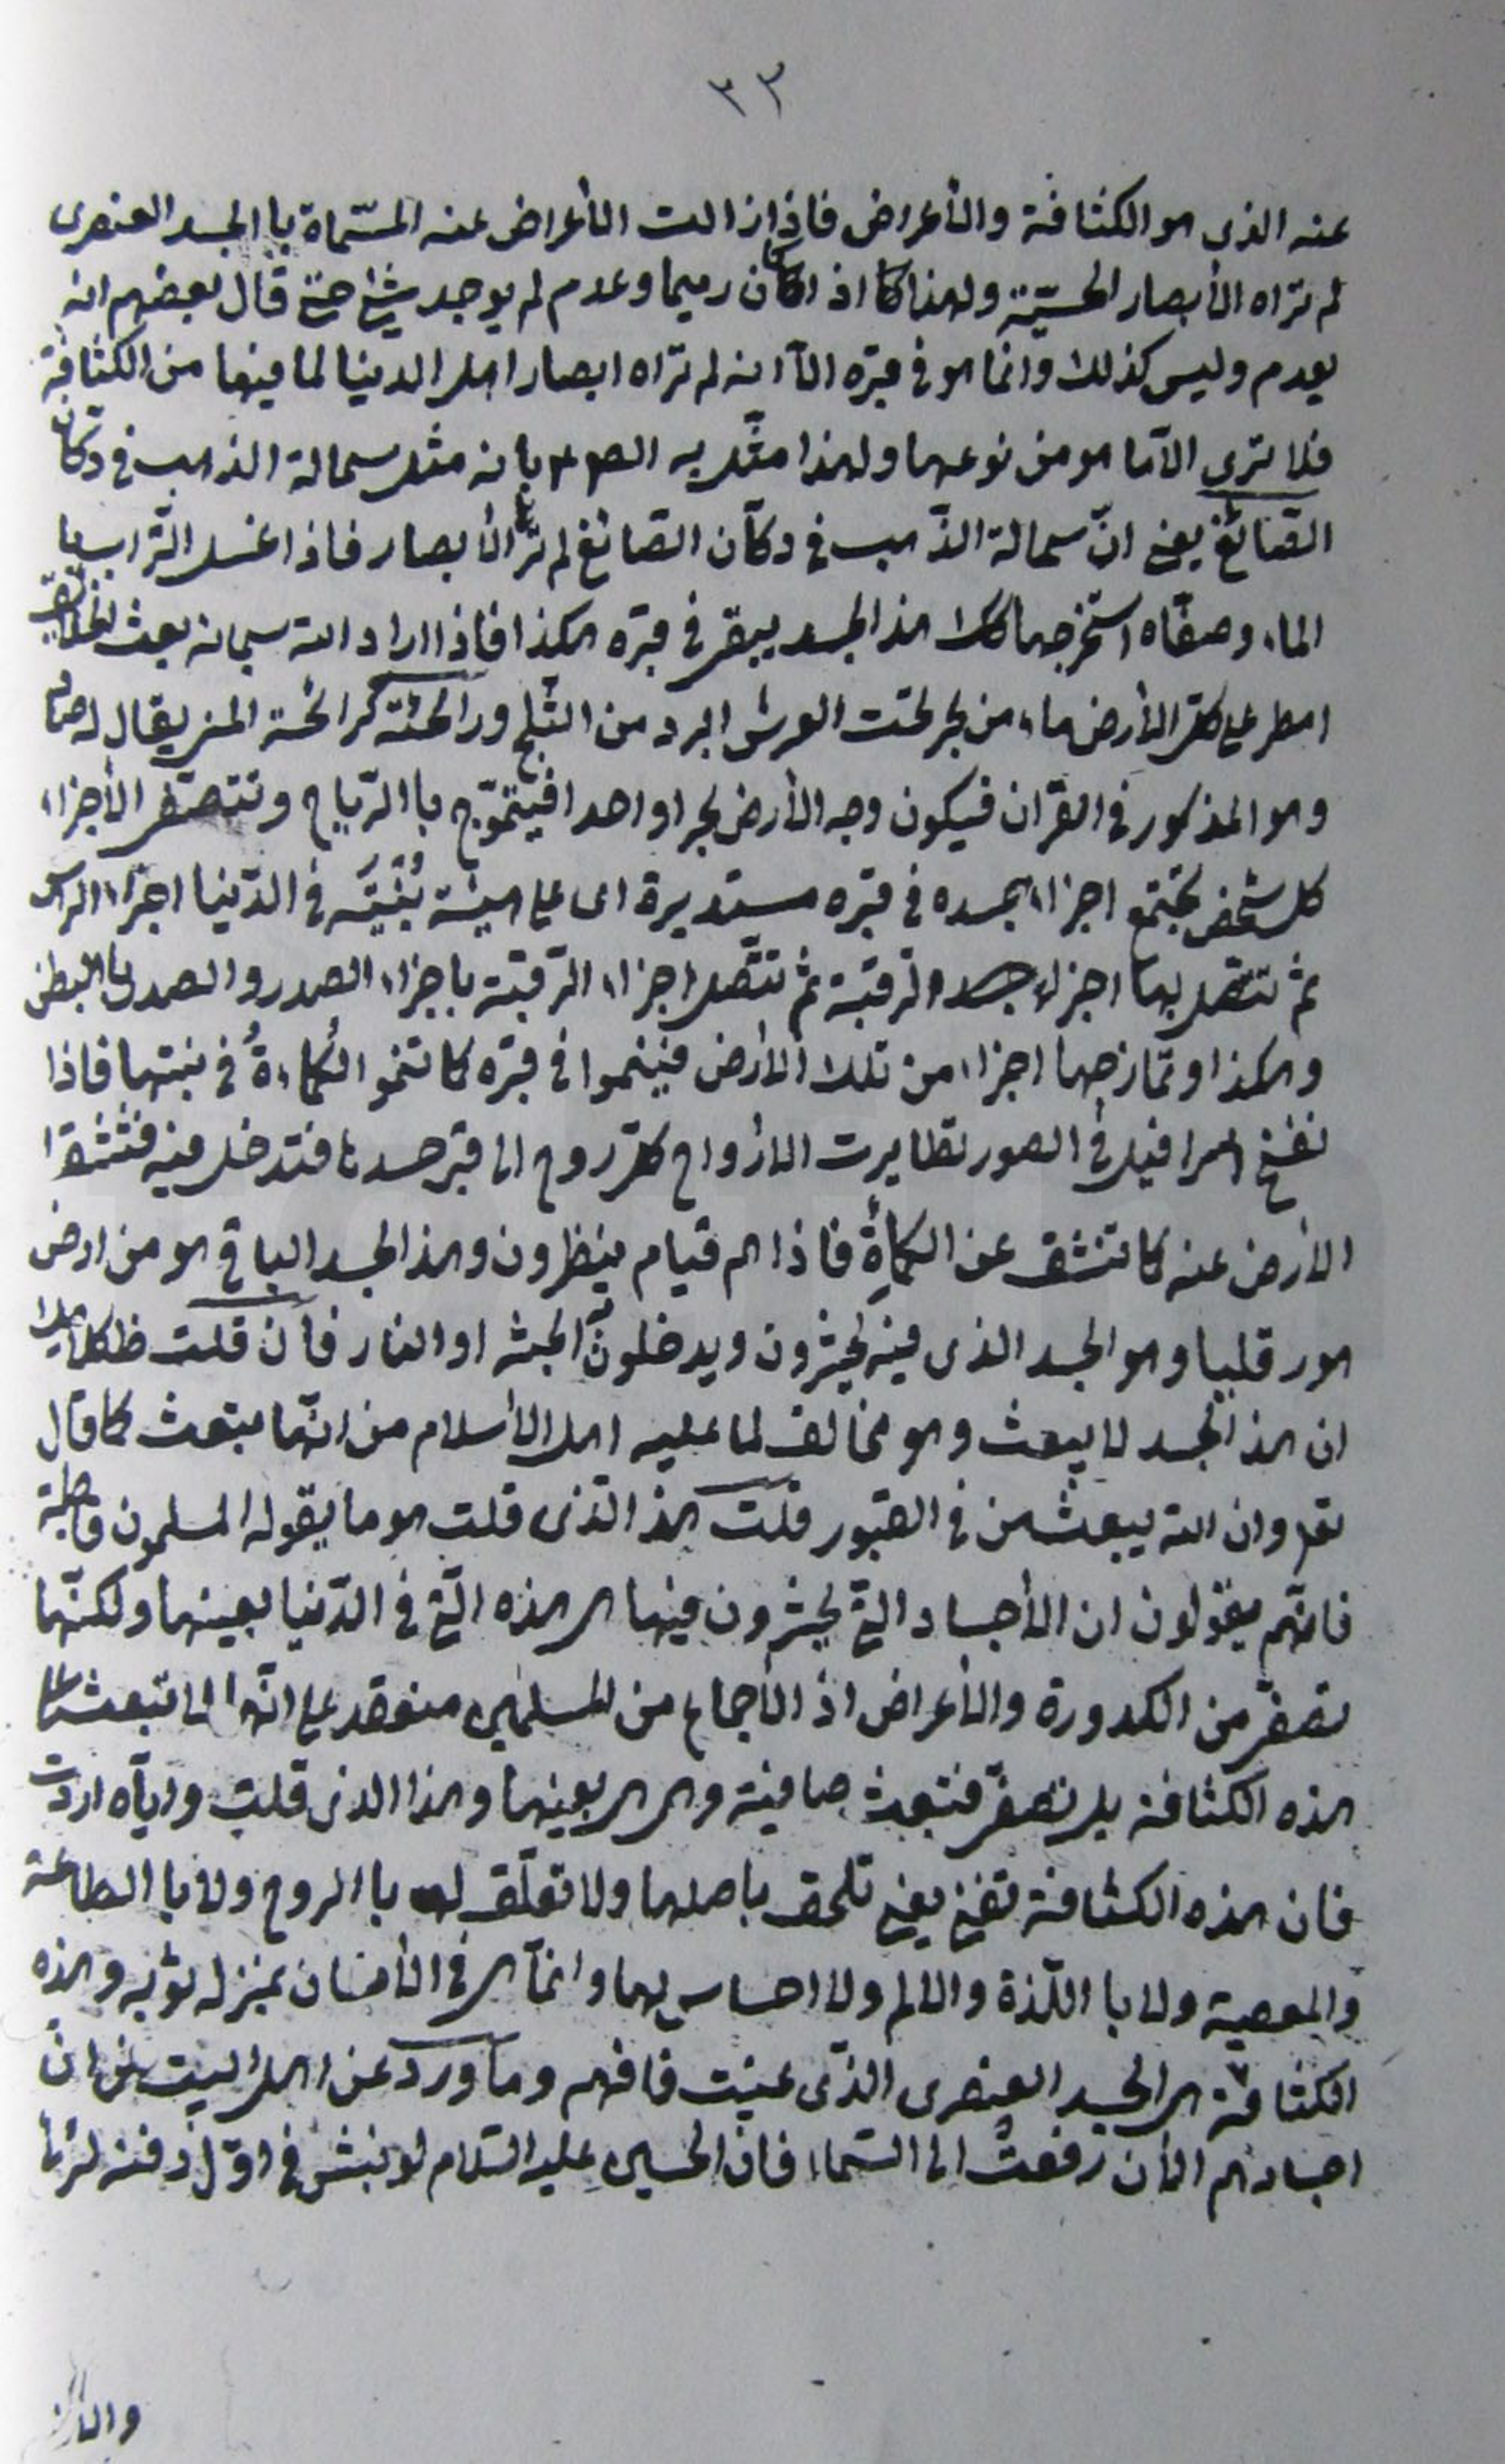 ٣٣
عنه الذى هو الكثافة والأعراض فاذا زالت الأعراض عنه المسّماة با الجسد العنصرى
لم تراه الأبصار الحسّيّة ولهذا كا اذا كان رميما وعدم لم يوجد شئ حتى قال بعضهم انه
يعدم وليس كذلك وانما هو فى قبره الآ انه لم تراه ابصار اهل الدنيا لما فيها من الكثافة
فلا ترى الآما هو من نوعها ولهذا مثّل به الصم بانه مثل سحالة الذهب فى دكان
الصّائغ يعنى انّ سحالة الذّهب فى دكّان الصّائغ لم ترها الأبصار فاذا غسل التّراب با
الماء وصفّاه استخرجها كك هذا الجسد يبقى فى قبره هكذا فاذا اراد الله سبحانه بعث الخلايق
امطر على كل الأرض ماء من بحر تحت العرش ابرد من الثّلج ورائحته كرائحة المنى يقال له صاد
وهو المذكور فى القرآن فيكون وجه الأرض بحرا واحدا فيتموّج با الرّياح وتتصفّى الأجزاء
كل شخص تجتمع اجزاء جسده فى قبره مستديرة اى على هيئة بُنْيَتِه فى الدّنيا اجزاء الراس
ثم تتصل بها اجزاء الرقبة ثم تتّصل اجزاء الرّقبة باجزاء الصدر والصدر بالبطن
وهكذا وتمازجها اجزاء من تلك الأرض فينموا فى قبره كما تنمو الكُماءةُ فى نبتها فاذا
نفخ اسرافيل فى الصور تطايرت الارواح كل روح الى قبر جسدها فتدخل فيه فتنشقّ
الأرض عنه كما تنشق عن الكمأةِ فاذا هم قيام ينظرون وهذا الجسد الباقى هو من ارض
هور قليا وهو الجسد الذى فيه يحشرون ويدخلون الجنّة او النار فان قلت ظ كلامك
ان هذا الجسد لا يبعث وهو مخالف لما عليه اهل الأسلام من انّها تبعث كما قال
تعا وان الله يبعث من فى القبور قلت هذا الّذى قلت هو ما يقوله المسلمون قاطبة
فانّهم يقولون ان الأجساد التى يحشرون فيها هى هذه الّتى فى الدّنيا بعينها ولكنّها
تصفّى من الكدورة والأعراض اذ الأجماع من المسلمين منعقد على انّها لا تبعث على
هذه الكثافة بل تصفّى فتبعث صافية وهى هى بعينها وهذا الذى قلت وايّاه اردت
فان هذه الكثافة تفنى يعنى تلحق باصلها ولا تعلّق لها با الروح ولا با الطاعة
والمعصية ولا با اللّذة والالم ولا احساس لها وانّما هى فى الأنسان بمنزله ثوبه وهذه
الكثافة هى الجسد العنصرى الذّى عنيت فافهم وما ورد عن اهل البيت من انّ
اجسادهم الأن رفعت الى السّماء فان الحسين عليه السّلام لو نبش فى اوّل دفنه لرئى